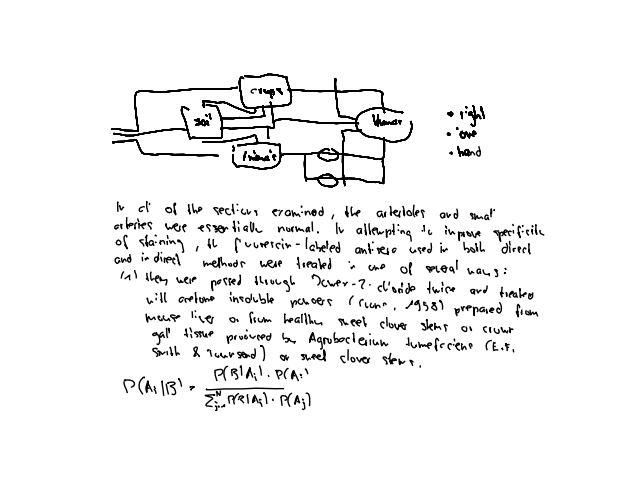 crops
soil
Human
Animals
• right
• love
• hand
In all of the sections examined, the arterioles and small
arteries were essentially normal. In attempting to improve specificity
of staining, the fluorescein-labeled antisera used in both direct
and indirect methods were treated in one of several ways:
(1) They were passed through Dowex-2-chloride twice and treated
with acetone insoluble powders (, 1958) prepared from
mouse liver or from healthy sweet clover stems or crown
gall tissue produced by Agrobacterium tumefaciens (E.F.
Smith & Townsend) or sweet clover stems.
P(A_i|B) = \frac{P(B|A_i) · P(A_i)}{\sum_{j=1}^{N} P(B|A_j) · P(A_j)}